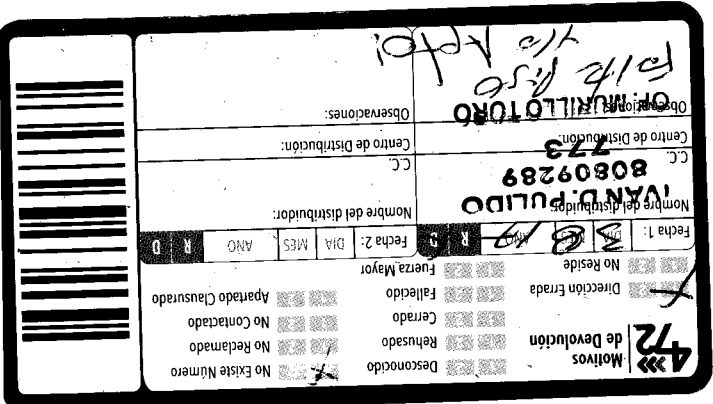 472
Motivos
de Devolución
Desconocido
Rehusado
Cerrado
Fallecido
Fuerza Mayor
No Existe Número
No Reclamado
No Contactado
Apartado Clausurado
Dirección Errada
No Reside
Fecha 1: DIA MES AÑO R D
Fecha 2: DIA MES AÑO R D
Nombre del distribuidor:
IVAN D. PULIDO
C.C.
80809289
Centro de Distribución:
773
Observaciones:
OP. MURILLO TORO
Falta Piso
y/o Apto!
Nombre del distribuidor:
C.C.
Centro de Distribución:
Observaciones: